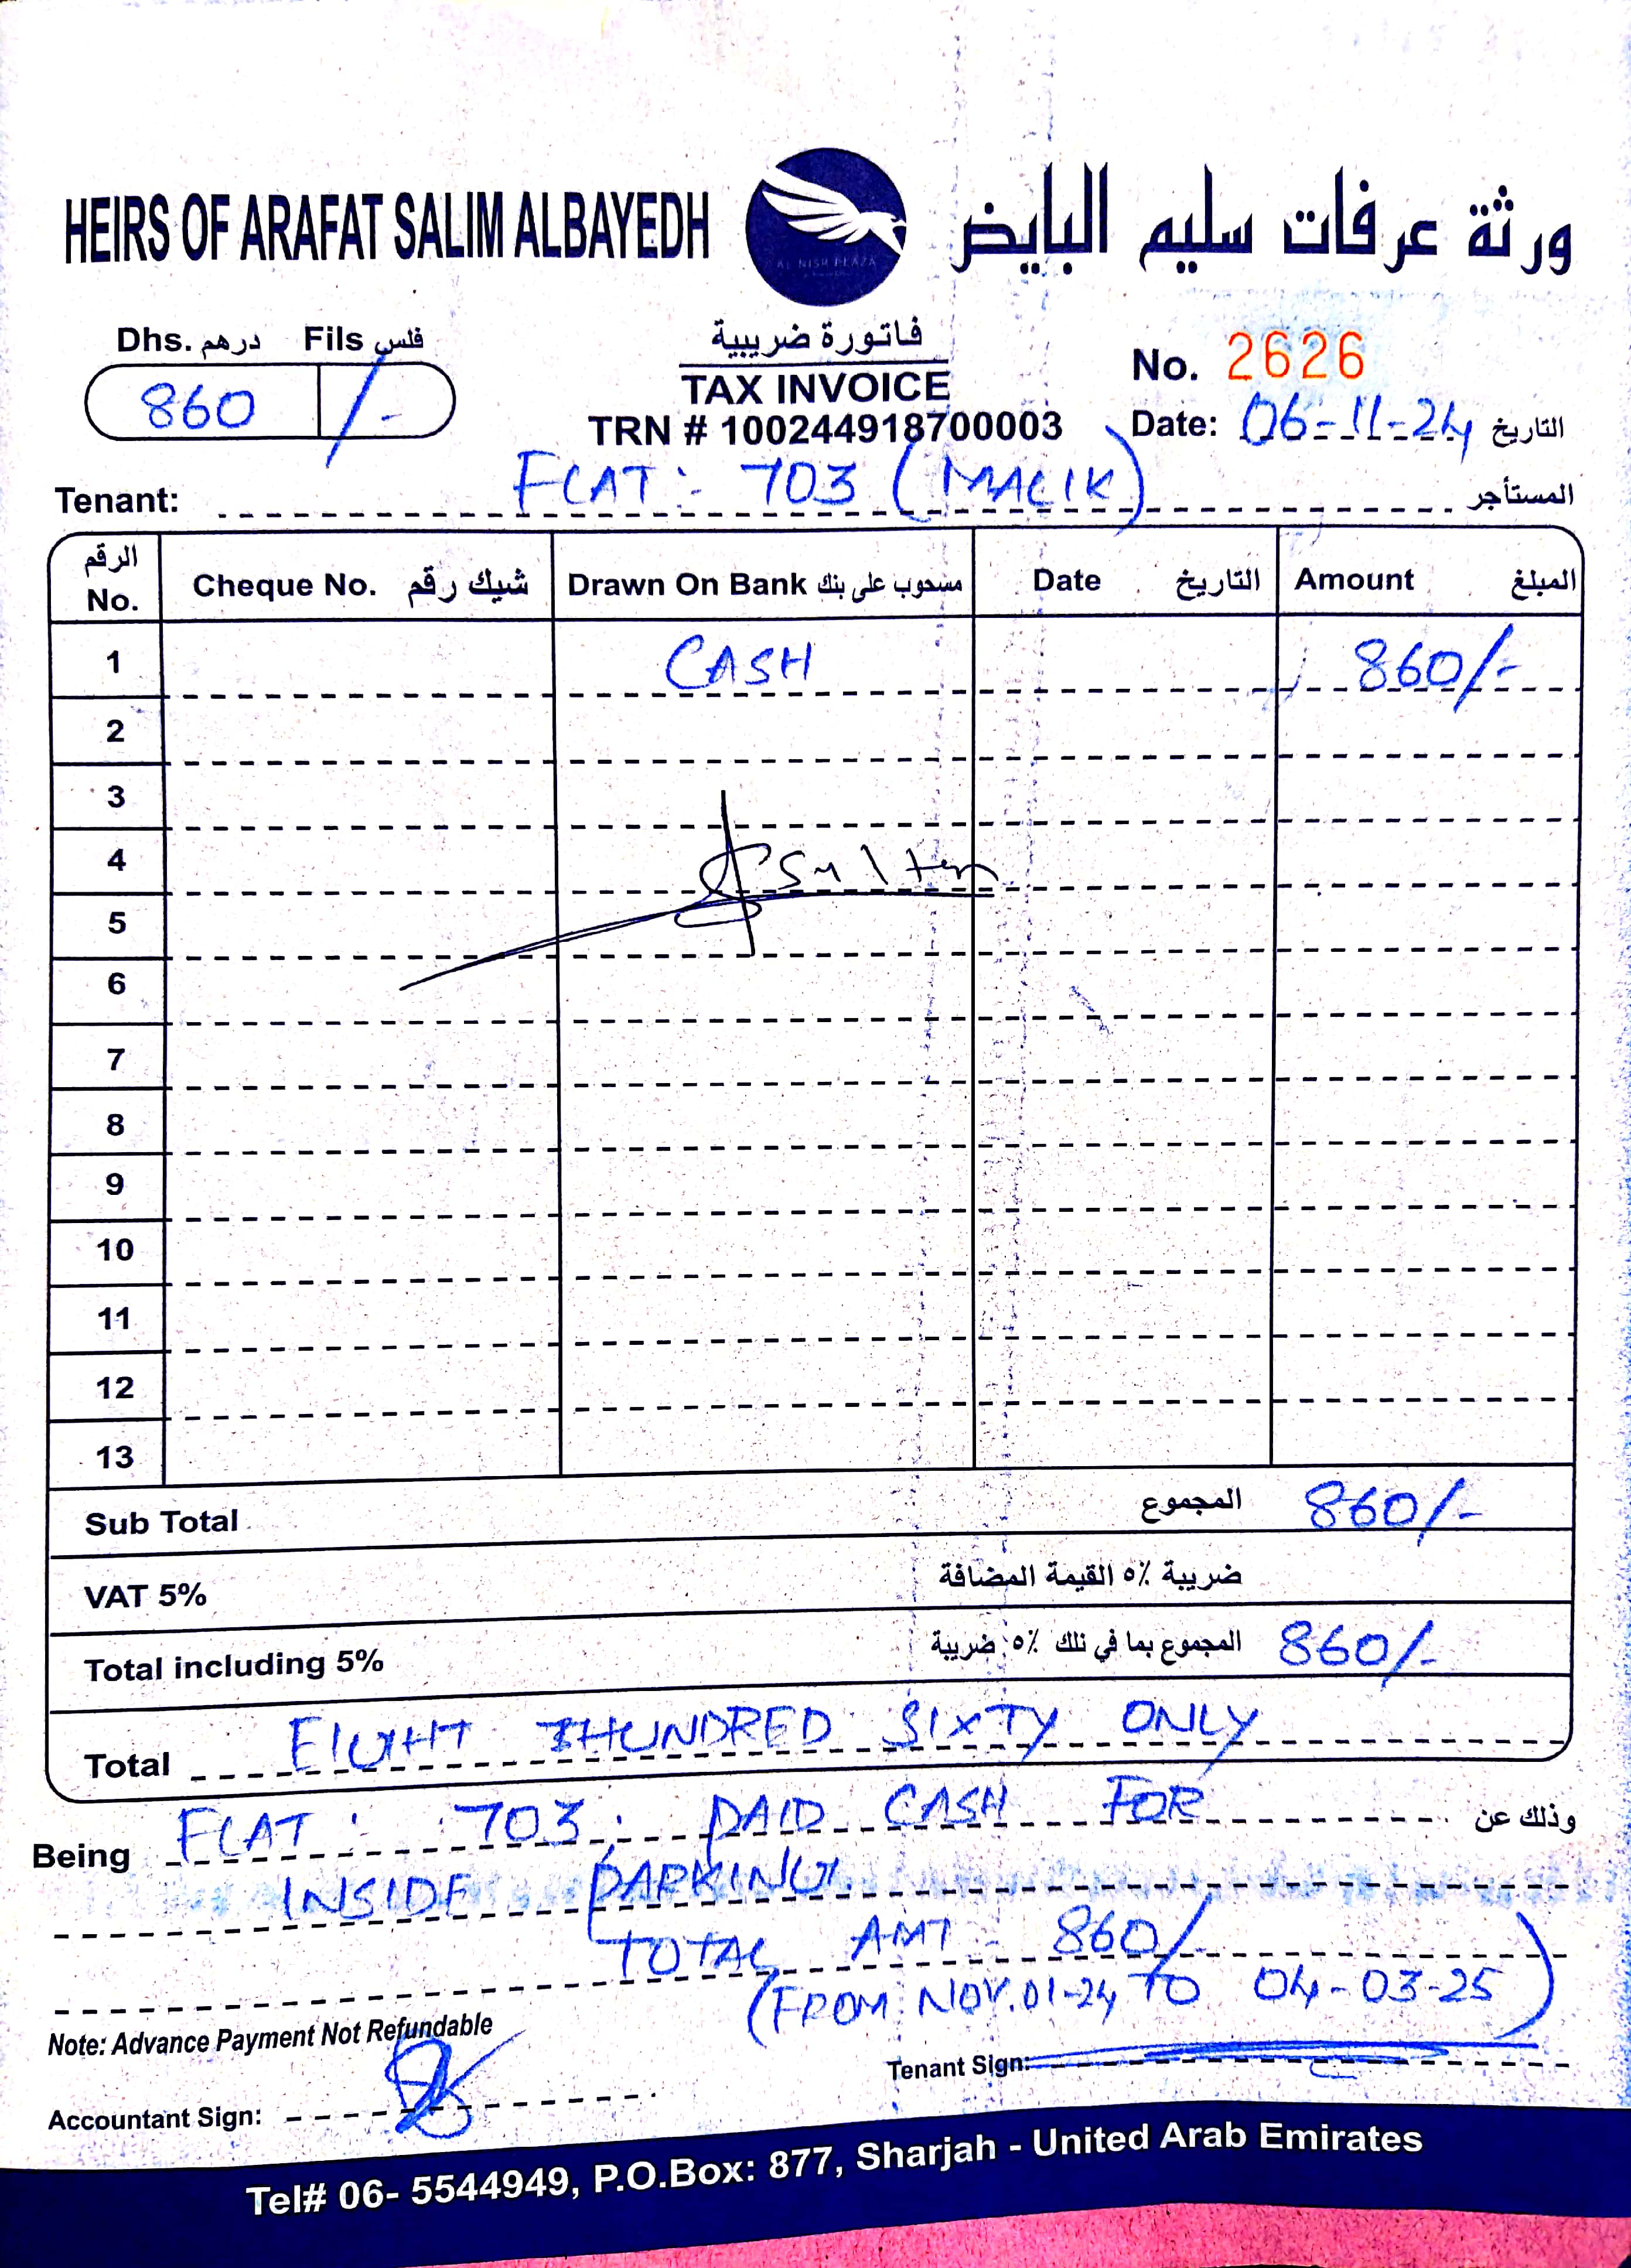 HEIRS OF ARAFAT SALIM ALBAYEDH
ورثة عرفات سليم البايض
AL NISR PLAZA
Dhs. درهم Fils فلس
860 /-
فاتورة ضريبية
TAX INVOICE
TRN # 100244918700003
No. 2626
Date: 06-11-24 التاريخ
Tenant: FLAT: 703 (MALIK) المستأجر
الرقم No. Cheque No. شيك رقم Drawn On Bank مسحوب على بنك Date التاريخ Amount المبلغ
1 CASH 860/-
2
3
4 Sultan
5
6
7
8
9
10
11
12
13
Sub Total المجموع 860/-
VAT 5% ضريبة ٥٪ القيمة المضافة
Total including 5% المجموع بما في ذلك ٥٪ ضريبة 860/-
Total EIGHT HUNDRED SIXTY ONLY
Being FLAT: 703. PAID CASH FOR وذلك عن
INSIDE PARKING.
TOTAL AMT 860/-
(FROM: NOV.01-24 TO 04-03-25)
Note: Advance Payment Not Refundable
Tenant Sign:
Accountant Sign:
Tel# 06- 5544949, P.O.Box: 877, Sharjah - United Arab Emirates